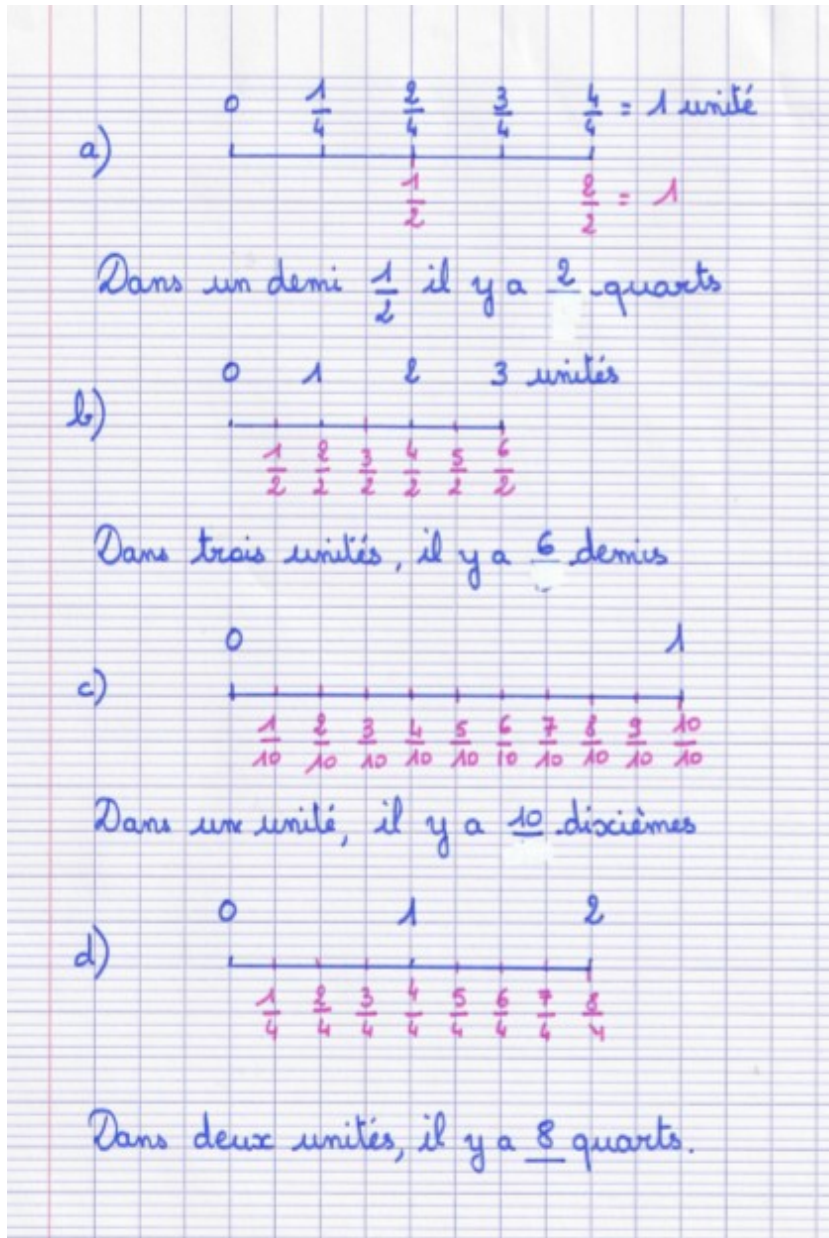 0 1/4 2/4 3/4 4/4 = 1 unité
a)
1/2 2/2 = 1
Dans un demi 1/2 il y a 2 quarts
0 1 2 3 unités
b)
1/2 2/2 3/2 4/2 5/2 6/2
Dans trois unités, il y a 6 demis
0 1
c)
1/10 2/10 3/10 4/10 5/10 6/10 7/10 8/10 9/10 10/10
Dans une unité, il y a 10 dixièmes
0 1 2
d)
1/4 2/4 3/4 4/4 5/4 6/4 7/4 8/4
Dans deux unités, il y a 8 quarts.